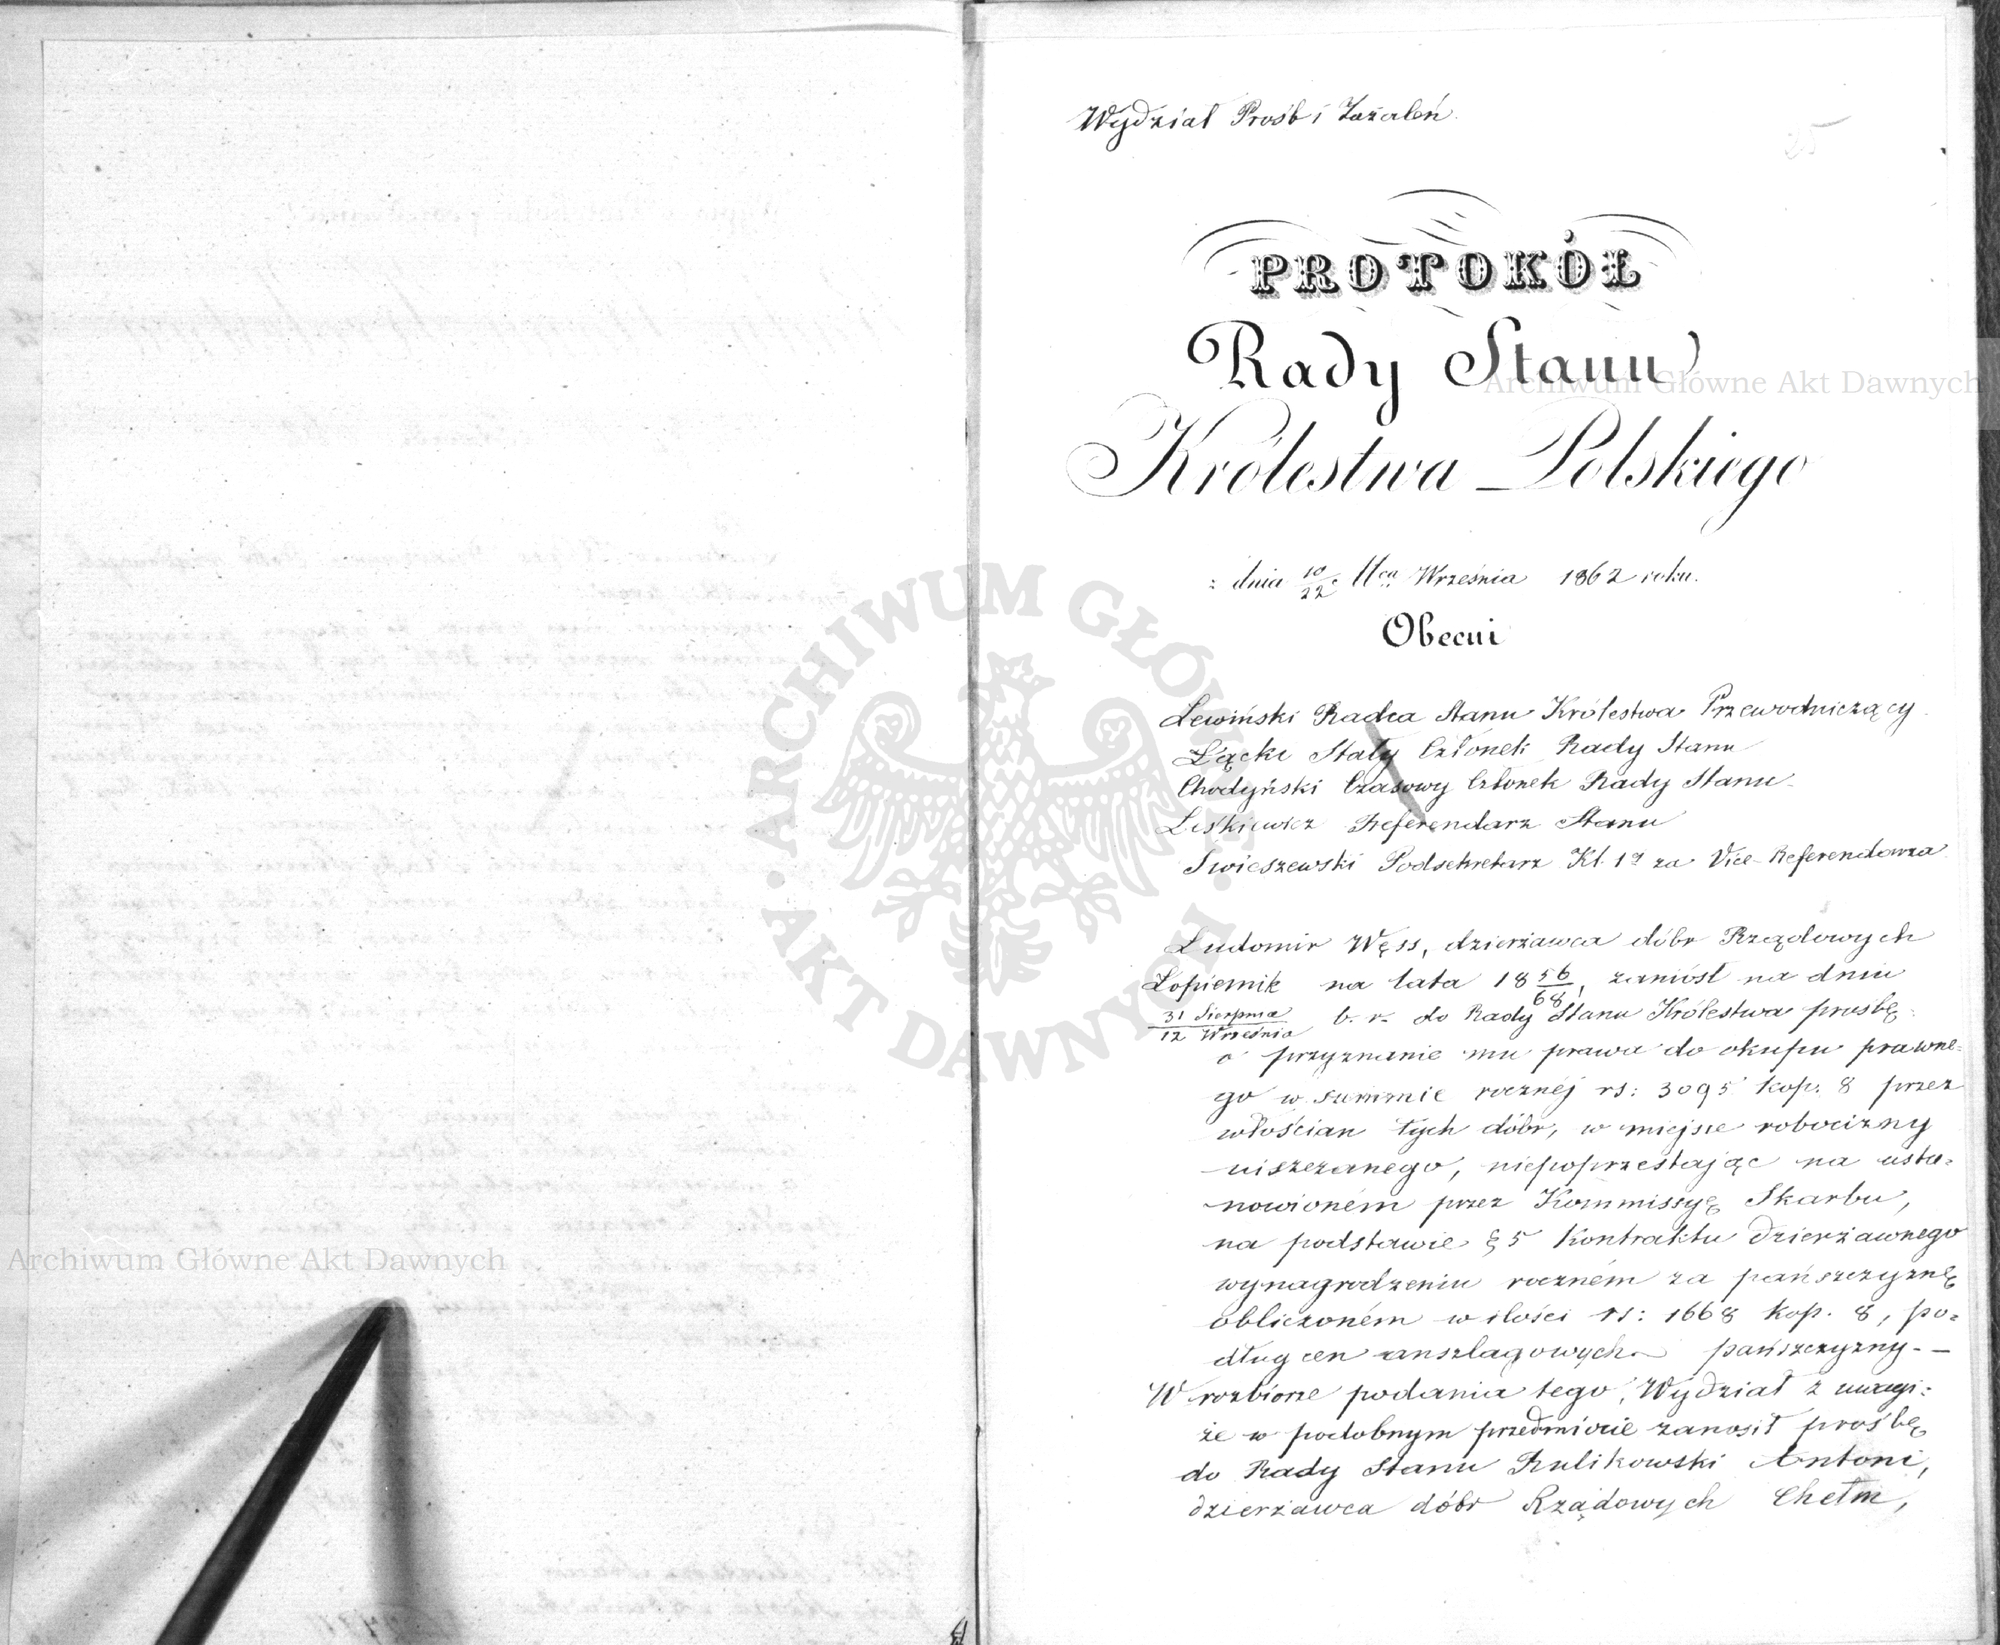 Wydział Prośb i Zażaleń.
25
PROTOKÓŁ
Rady Stanu
Królestwa Polskiego
z dnia 10/22 Mca Września 1862 roku.
Obecni
Lewiński Radca Stanu Królestwa Przewodniczący
Łącki Stały Członek Rady Stanu
Chodyński Czasowy Członek Rady Stanu
Leśkiewicz Referendarz Stanu
Swieszewski Podsekretarz Kl. 1ej za Vice-Referendarza
Ludomir Węss, dzierżawca dóbr Rządowych
Łopiennik na lata 1856/68, zaniósł na dniu
31 Sierpnia/12 Września b. r. do Rady Stanu Królestwa prośbę
o przyznanie mu prawa do okupu prawne-
go w summie rocznéj rs: 3095 kop. 8 przez
włościan tych dóbr, w miejsce robocizny
uiszczanego, niepoprzestając na usta-
nowioném przez Kommissyę Skarbu,
na podstawie § 5 Kontraktu dzierżawnego
wynagrodzeniu roczném za pańszczyznę
obliczoném w ilości rs: 1668 kop. 8, po-
dług cen anszlagowych pańszczyzny. —
W rozbiorze podania tego, Wydział z uwagi:
że w podobnym przedmiocie zanosił prośbę
do Rady Stanu Rulikowski Antoni,
dzierżawca dóbr Rządowych Chełm,
ARCHIWUM GŁÓWNE AKT DAWNYCH
Archiwum Główne Akt Dawnych
Archiwum Główne Akt Dawnych